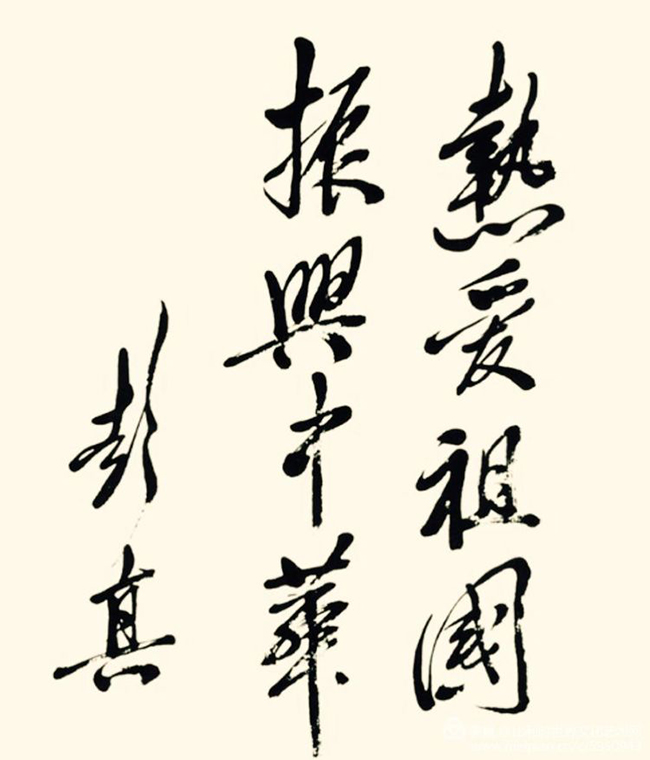 熱爱祖國
振興中華
彭真